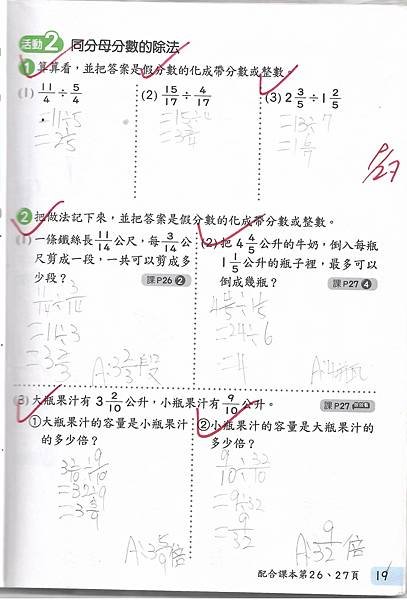 活動2 同分母分數的除法
1 算算看，並把答案是假分數的化成帶分數或整數。
(1) 11/4 ÷ 5/4 (2) 15/17 ÷ 4/17 (3) 2 3/5 ÷ 1 2/5
=11÷5 =15÷4 =13÷7
=3 3/4 =1 6/7
8/27
2 把做法記下來，並把答案是假分數的化成帶分數或整數。
(1) 一條鐵絲長 11/14 公尺，每 3/14 公
尺剪成一段，一共可以剪成多
少段？
課P26 2
11/14÷3/14
=11÷3
=3 2/3
A:3 2/3段
(2) 把 4 4/5 公升的牛奶，倒入每瓶
1 1/5 公升的瓶子裡，最多可以
倒成幾瓶？
課P27 4
4 4/5÷1 1/5
=24÷6
=4
A:4瓶
(3) 大瓶果汁有 3 2/10 公升，小瓶果汁有 9/10 公升。
課P27
①大瓶果汁的容量是小瓶果汁
的多少倍？
3 2/10÷9/10
=32÷9
=3 5/9
A:3 5/9倍
②小瓶果汁的容量是大瓶果汁的
多少倍？
9/10÷32/10
=9÷32
=9/32
A:9/32倍
配合課本第26、27頁
19